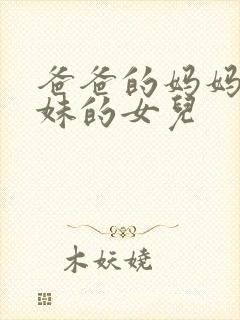 爸爸的妈妈
妹的女兒
木妖娆